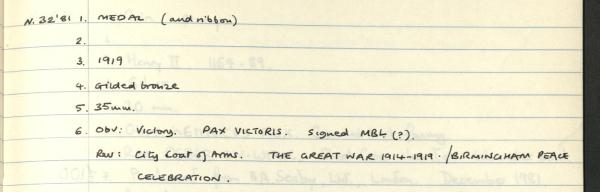 N. 32'81 1. MEDAL (and ribbon)
2.
3. 1919
4. Gilded bronze
5. 35mm.
6. Obv: Victory. PAX VICTORIS. Signed MBL (?).
Rev: City Coat of Arms. THE GREAT WAR 1914-1919. /BIRMINGHAM PEACE
CELEBRATION.